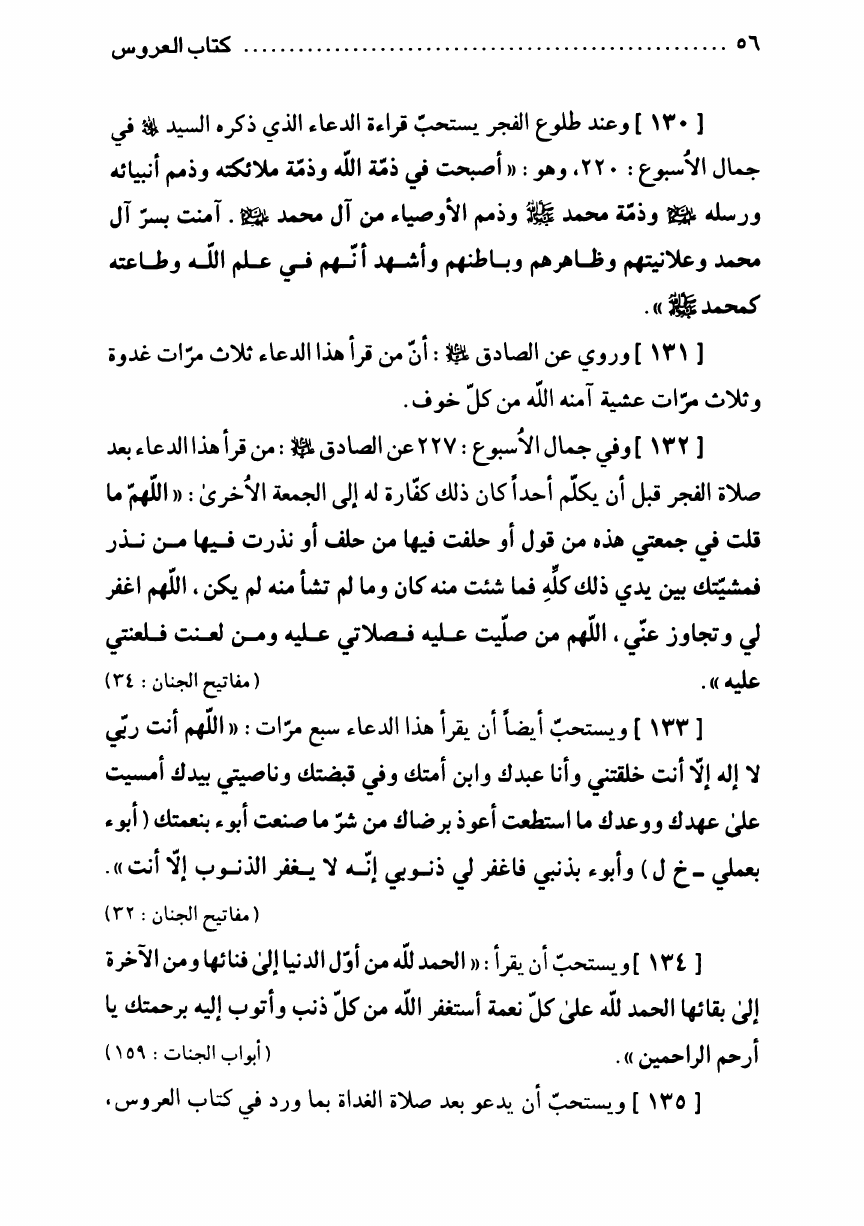 ٥٦ .................................................... كتاب العروس
[ ١٣٠ ] وعند طلوع الفجر يستحبّ قراءة الدعاء الذي ذكره السيد ﷺ في
جمال الأسبوع : ٢٢٠، وهو : « أصبحت في ذمّة اللّه وذمّة ملائكته وذمم أنبيائه
ورسله وذمّة محمد ﷺ وذمم الأوصياء من آل محمد . آمنت بسرّ آل
محمد وعلانيتهم وظـاهرهم وبـاطنهم وأشـهد أنّـهم فـي عـلم اللّـه وطـاعته
كمحمد ﷺ ».
[ ١٣١ ] وروي عن الصادق : أنّ من قرأ هذا الدعاء ثلاث مرّات غدوة
وثلاث مرّات عشية آمنه اللّه من كلّ خوف.
[ ١٣٢ ] وفي جمال الأسبوع : ٢٢٧ عن الصادق : من قرأ هذا الدعاء بعد
صلاة الفجر قبل أن يكلّم أحداً كان ذلك كفّارة له إلى الجمعة الأخرىٰ : « اللّهمّ ما
قلت في جمعتي هذه من قول أو حلفت فيها من حلف أو نذرت فـيها مـن نـذر
فمشيّتك بين يدي ذلك كلِّهِ فما شئت منه كان وما لم تشأ منه لم يكن ، اللّهم اغفر
لي وتجاوز عنّي ، اللّهم من صلّيت عـليه فـصلاتي عـليه ومـن لعـنت فـلعنتي
عليه ». (مفاتيح الجنان : ٣٤)
[ ١٣٣ ] ويستحبّ أيضاً أن يقرأ هذا الدعاء سبع مرّات : « اللّهم أنت ربّي
لا إله إلّا أنت خلقتني وأنا عبدك وابن أمتك وفي قبضتك وناصيتي بيدك أمسيت
علىٰ عهدك ووعدك ما استطعت أعوذ برضاك من شرّ ما صنعت أبوء بنعمتك (أبوء
بعملي ـ خ ل ) وأبوء بذنبي فاغفر لي ذنـوبي إنّـه لا يـغفر الذنـوب إلّا أنت ».
(مفاتيح الجنان : ٣٢)
[ ١٣٤ ] ويستحبّ أن يقرأ : « الحمد للّه من أوّل الدنيا إلىٰ فنائها ومن الآخرة
إلىٰ بقائها الحمد للّه علىٰ كلّ نعمة أستغفر اللّه من كلّ ذنب وأتوب إليه برحمتك يا
أرحم الراحمين ». (أبواب الجنات : ١٥٩)
[ ١٣٥ ] ويستحبّ أن يدعو بعد صلاة الغداة بما ورد في كتاب العروس،